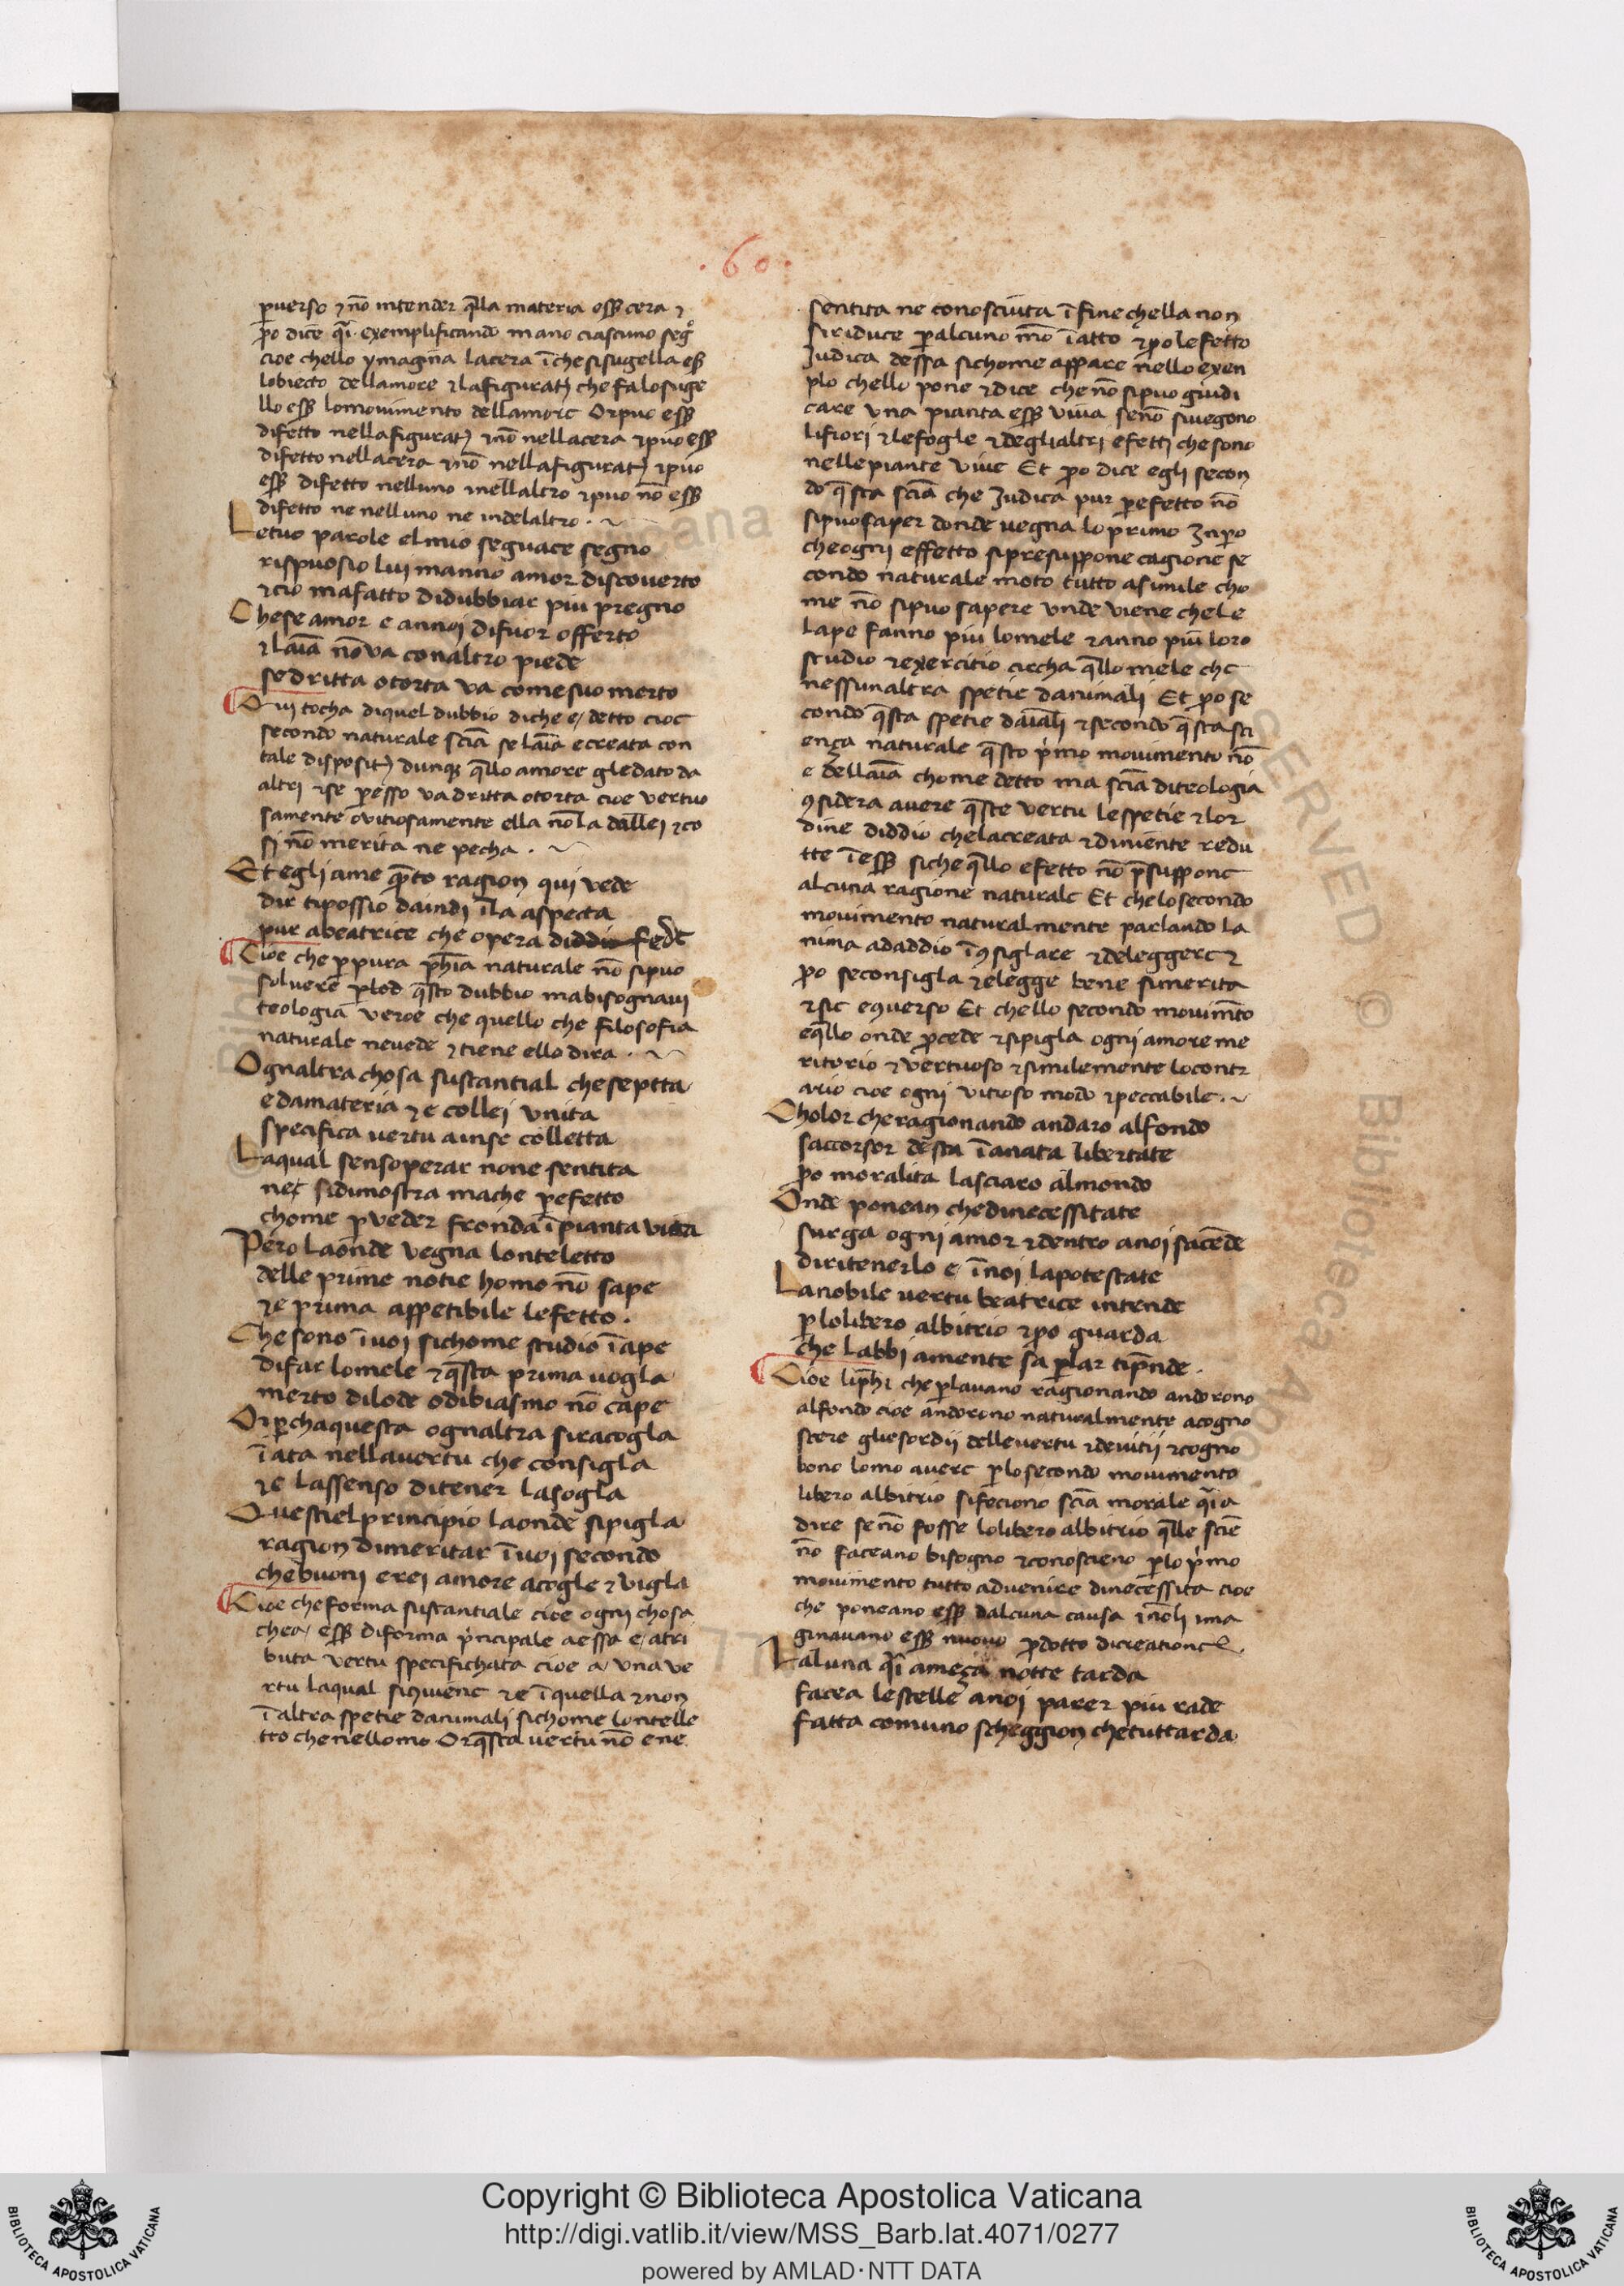 .60.
p̄uerso ⁊ nō intender q̄lla materia ess̄ cera ⁊
p̄o dice q̄i exemplificando mano ciascuno segº
cioe chello ymagina lacera ī che sisugella es̄
lobiecto dellamore ⁊ lafigurat̄ che falosuge
llo ess̄ lomouimento dellamore Or puo ess̄
difetto nellafigurat̄ ⁊ nō nellacera ⁊ puo ess̄
difetto nellacera ⁊ nō nellafigurat̄ ⁊ puo
ess̄ difetto nelluno ⁊ nellaltro ⁊ puo nō ess̄
difetto ne nelluno ne indelaltro . ~
Letuo parole elmio seguace segno
rispuosio lui manno amor discouerto
⁊ cio mafatto didubbiar piu pregno
Chese amor e annoi difuor offerto
⁊ laīa nō va conaltro piede
sedritta otorta va come suo merto
Qui tocha diquel dubbio diche e/ detto cioe
secondo naturale sciā se laīa e creata con
tale disposit̄ dunq̄ q̄llo amore gledato da
altri ⁊ se p̄ esso va dritta otorta cioe vertuo
samente ouitiosamente ella nō la dallei ⁊ co
si nō merita ne pecha . ~
Et egli ame q̄to ragion qui vede
dir tipossio daindi ī la aspecta
pur abeatrice che opera diddio fede
Cioe che p̄ pura ph̄ia naturale nō sipuo
soluere p̄lod q̄sto dubbio mabisognaui
teologia vero e che quello che filosofia
naturale neuede ⁊ tiene ello dira . ~
Ognaltra chosa sustantial cheseptta
e damateria ⁊ e collei vnita
specifica uertu ainse colletta
Laqual sensoperar none sentita
ne sidimostra mache p̄ efetto
chome p̄ veder fronda ī pianta vita
Pero laonde vegna lonteletto
delle prime notie homo nō sape
⁊ e prima appetibile lefetto .
Che sono ī uoi sichome studio ī ape
difar lomele ⁊ q̄sta prima uogla
merto dilode odibiasmo nō cape
Or p̄cha questa ognaltra siracogla
ī ata nellauertu che consigla
⁊ e lassenso ditener lasogla
Questiel principio laonde sipigla
ragion dimeritar ī uoi secondo
chebuoni erei amore acogle ⁊ vigla
Cioe che forma sustantiale cioe ogni chosa
chea/ ess̄ diforma p̄ncipale aessa e/ atri
buta vertu specifichata cioe a/ vna ve
rtu laqual siquiene ⁊ e ī quella ⁊ non
ī altra spetie danimali sichome lontelle
tto chenellomo Or q̄sta uertu nō ene
sentita ne conosciuta ī fine chella non
siriduce p̄ alcuno mō ī atto ⁊ p̄o lefetto
Judica dessa sichome appare nello exen
plo chello pone ⁊ dice che nō sipuo giudi
care vna pianta ess̄ viua senō siuegono
lifiori ⁊ lefogle ⁊ deglialtri efetti che sono
nellepiante viue Et p̄o dice egli secon
do q̄sta sciā che Judica pur p̄ efetto nō
sipuo saper donde uegna lo primo Jnp̄o
cheogni effetto sipresuppone cagione se
condo naturale moto tutto asimile cho
me nō sipuo sapere vnde viene chele
lape fanno piu lomele ⁊ anno piu loro
studio ⁊ exercitio circha q̄llo mele che
nessunaltra spetie danimali Et p̄o se
condo q̄sta spetie daīali ⁊ secondo q̄sta sci
ença naturale q̄sto p̄mo mouimento nō
e dellaīa chome detto ma sciā diteologia
ꝯsidera auere q̄ste vertu lespetie ⁊ lor
dine diddio chelacreata ⁊ diuiente redu
tte ī ess̄ siche q̄llo efetto nō p̄suppone
alcuna ragione naturale Et chelosecondo
mouimento naturalmente parlando la
nima adaddio ī ꝯsiglare ⁊ deleggere ⁊
p̄o seconsigla ⁊ elegge bene simerita
⁊ sic eꝯuerso Et chello secondo mouimēto
eq̄llo onde p̄cede ⁊ sipigla ogni amore me
ritorio ⁊ vertuoso ⁊ similemente locontr
ario cioe ogni vitioso modo ⁊ peccabile . ~
Cholor che ragionando andaro alfondo
saccorser desta ī anata libertate
p̄o moralita lasciaro almondo
Onde ponean chedinecessitate
surga ogni amor ⁊ dentro anoi sacēde
diritenerlo e/ ī noi lapotestate
Lanobile uertu beatrice intende
p̄ lolibero albitrio ⁊ p̄o guarda
che labbi amente sa p̄lar tip̄nde .
Cioe liph̄i che p̄lauano ragionando andorono
alfondo cioe andorono naturalmente acogno
scere gliesordij delleuertu ⁊ deuitij ⁊ cogno
bono lomo auere p̄ losecondo mouimento
libero albitrio sifeciono sciā morale q̄i a
dire senō fosse lolibero albitrio q̄lle sciē
nō faceano bisogno ⁊ conoscieno p̄ lo p̄mo
mouimento tutto aduenire dinecessita cioe
che poneano ess̄ dalcuna causa ⁊ nōli ima
ginauano ess̄ nuouo p̄dotto dicreatione
Laluna q̄i ameça notte tarda
facea lestelle anoi parer piu rade
fatta comuno scheggion chetuttarda
Copyright © Biblioteca Apostolica Vaticana
http://digi.vatlib.it/view/MSS_Barb.lat.4071/0277
powered by AMLAD·NTT DATA
BIBLIOTECA APOSTOLICA VATICANA
BIBLIOTECA APOSTOLICA VATICANA